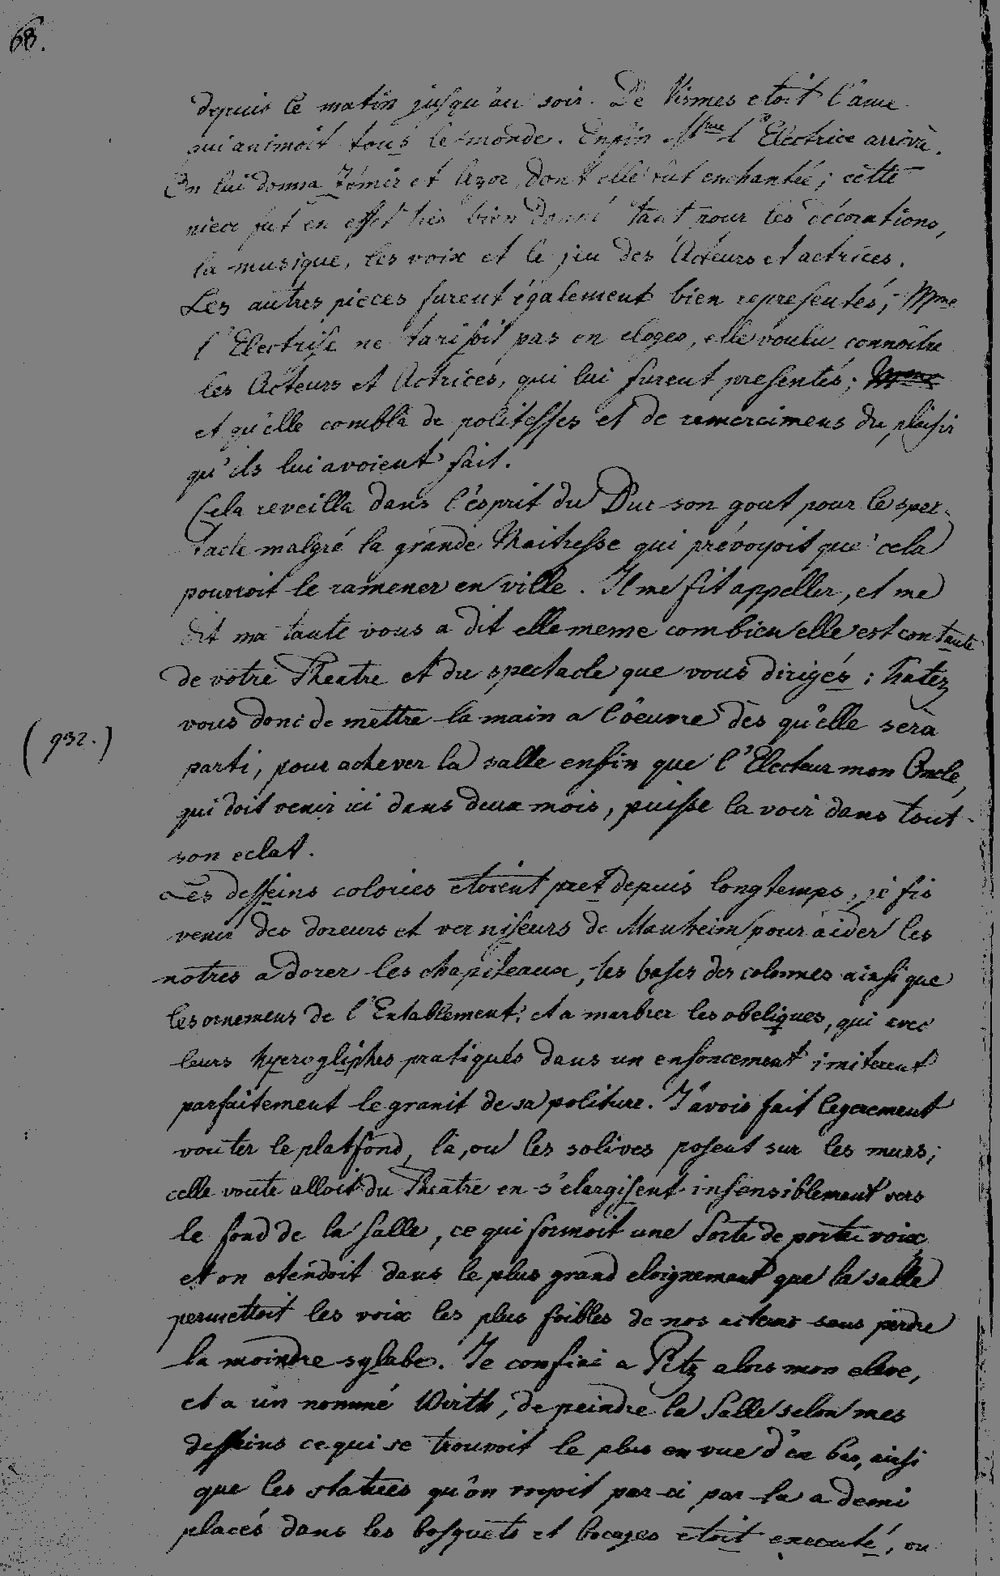 68.
depuis le matin jusqu'au soir. De Vismes etoit l'ame
qui animoit tous le monde. Enfin Mme l'Electrice arriva.
On lui donna Zémir et Azor, dont elle fut enchantée; cette
piece fut en effet très bien donné tant pour les décorations,
la musique, les voix et le jeu des Acteurs et actrices.
Les autres pieces furent également bien representés; Mme
l'Electrise ne tarissoit pas en eloges, elle voulu connoitre
les Acteurs et Actrices, qui lui furent presentés;
et qu'elle combla de politesses et de remercimens du plaisir
qu'ils lui avoient fait.
Cela reveilla dans l'ésprit du Duc son gout pour le spec-
tacle malgré la grande Maitresse qui prévoyoit que cela
pourroit le ramener en ville. Il me fit appeller, et me
dit ma tante vous a dit elle meme combien elle est contante
de votre Theatre et du spectacle que vous dirigés; hatez
vous donc de mettre la main a l'oeuvre dès qu'elle sera
(932.)
parti, pour achever la salle enfin que l'Electeur mon Oncle,
qui doit venir ici dans deux mois, puisse la voir dans tout
son eclat.
Les desseins colories etoient pret depuis longtemps, je fis
venir des doreurs et verniseurs de Manheim pour aider les
notres a dorer les chapiteaux, les bases des colonnes ainsi que
les ornemens de l'Entablement; et a marbrer les obeliques, qui avec
leurs hyerogliphes pratiqués dans un enfoncement imiterent
parfaitement le granit de sa politure. J'avois fait legerement
vouter le platfond, là, ou les solives posent sur les murs;
celle voute alloit du Theatre en s'elargisent insensiblement vers
le fond de la salle, ce qui formoit une sorte de porte voix
et on etendoit dans le plus grand eloignement que la salle
permettoit les voix les plus foibles de nos acteurs sans perdre
la moindre sylabe. Je confiai a Pitz alors mon eleve,
et a un nommé Wirth, de peindre la Salle selon mes
desseins ce qui se trouvoit le plus en vue d'en bas, ainsi
que les statues qu'on voyoit par-ci par-la a demi
placés dans les bosquets et bocages etoit executé, ou